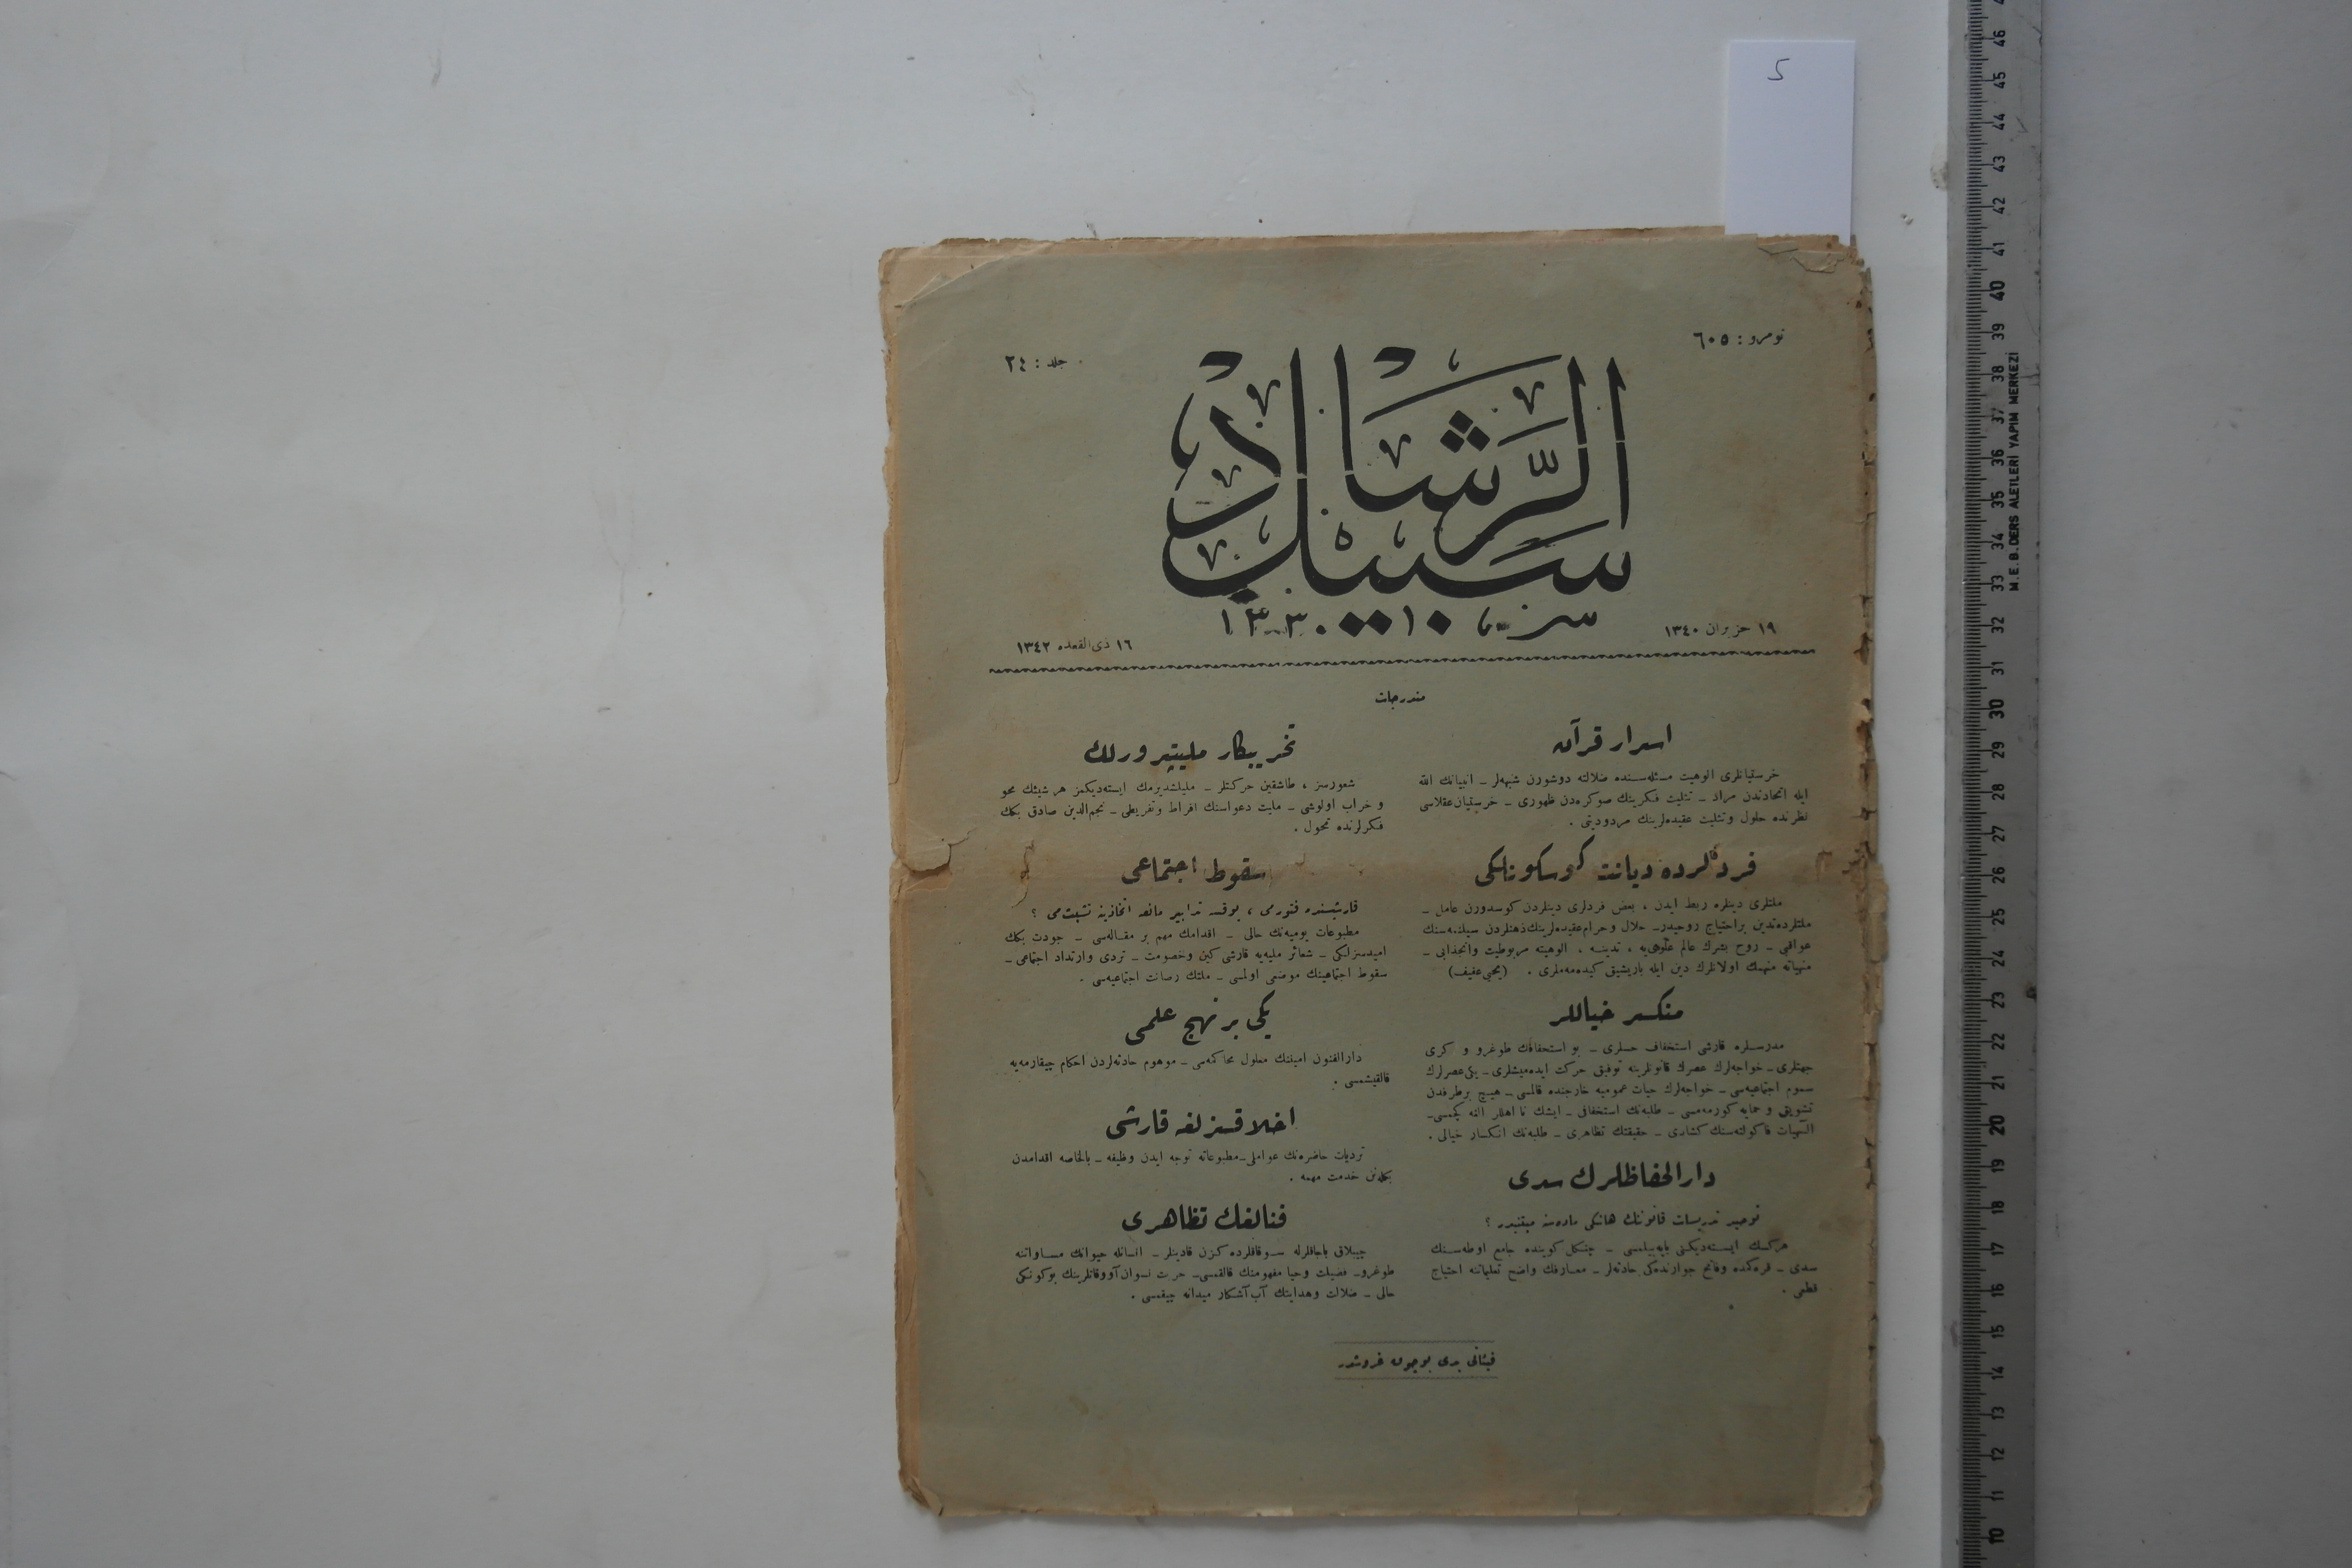 5
نومرو : ٦٠٥
جلد : ٢٤
سبيل الرشاد
١٩ حزيران ١٣٤٠
١٦ ذى القعده ١٣٤٢
مندرجات
اسرار قرآن
خرستيانلرى الوهيت مسئله‌سنده ضلالته دوشورن شبهه‌لر ـ انبيانك الله
ايله اتحادندن مراد ـ تثليث فكرينك صوكره‌دن ظهورى ـ خرستيان عقلاسى
نظرنده حلول وتثليث عقيده‌لرينك مردوديتى .
فردلرده ديانت كوسكونلكى
ملتلرى دينلره ربط ايدن ، بعض فردلرى دينلردن كوسدورن عامل ـ
ملتلرده تدين براحتياج روحيدر ـ حلال وحرام عقيده‌لرينك ذهنلردن سيلنمه‌سنك
عواقبى ـ روح بشرك عالم علوى‌يه ، تدينه ، الوهيته مربوطيت وانجذابى ـ
منهياته منهمك اولانلرك دين ايله باريشيق كيده‌مه‌ملرى . (يحيى عفيف)
منكسر خياللر
مدرسه‌لره قارشى استخفاف حسلرى ـ بو استخفافك طوغرو و اكرى
جهتلرى ـ خواجه‌لرك عصرك قانونلرينه توفيق حركت ايده‌ميشلرى ـ يكى عصرلرك
سموم اجتماعيه‌سى ـ خواجه‌لرك حيات عموميه خارجنده قالمسى ـ هيچ برطرفدن
تشويق و حمايه كورمه‌مسى ـ طلبه‌نك استخفافى ـ ايشك نا اهللر الله كچمسى ـ
الٓهيات فاكولته‌سنك كشادى ـ حقيقتك تظاهرى ـ طلبه‌نك انكسار خيالى .
دار الحفاظلرك سدى
توحيد تدريسات قانوننك هانكى ماده‌سنه مبتنيدر ؟
هركسك ايسته‌ديكنى ياپه‌بيلمسى ـ چنكل كوينده جامع اوطه‌سنك
سدى ـ قره‌كمده وفاتح جوارنده‌كى حادثه‌لر ـ معارفك واضح تعليماتنه احتياج
قطعى .
تخريبكار مليتپرورلك
شعورسز ، طاشقين حركتلر ـ مليلشديرمك ايسته‌ديكمز هر شيئك محو
و خراب اولوشى ـ مليت دعواسنك افراط وتفريطى ـ نجم‌الدين صادق بكك
فكرلرنده تحول .
سقوط اجتماعى
قارشيسنده فتورمى ، يوقسه تدابير مانعه اتخاذينه تشبث‌مى ؟
مطبوعات يوميه‌نك حالى ـ اقدامك مهم بر مقاله‌سى ـ جودت بكك
اميدسزلكى ـ شعائر مليه‌يه قارشى كين وخصومت ـ تردى وارتداد اجتماعى ـ
سقوط اجتماعينك موضعى اولمسى ـ ملتك رصانت اجتماعيه‌سى .
يكى بر نهج علمى
دارالفنون امينتك معلول محاكمه‌سى ـ موهوم حادثه‌لردن احكام چيقارمه‌يه
قالقيشمسى .
اخلاقسزلغه قارشى
ترديات حاضره‌نك عواملى ـ مطبوعاته توجه ايدن وظيفه ـ بالخاصه اقدامدن
بكله‌نن خدمت مهمه .
فنالغك تظاهرى
چيپلاق باجاقلرله سوقاقلرده كزن قادينلر ـ انسانله حيوانك مساواتنه
طوغرو ـ فضيلت وحيا مفهومنك قالقمسى ـ حريت نسوان آووقاتلرينك بوكونكى
حالى ـ ضلالت وهدايتك آپ آشكار ميدانه چيقمسى .
فيئاتى يدى بوچوق غروشدر
M.E.B. DERS ALETLERİ YAPIM MERKEZİ
46
45
44
43
42
41
40
39
38
37
36
35
34
33
32
31
30
29
28
27
26
25
24
23
22
21
20
19
18
17
16
15
14
13
12
11
10